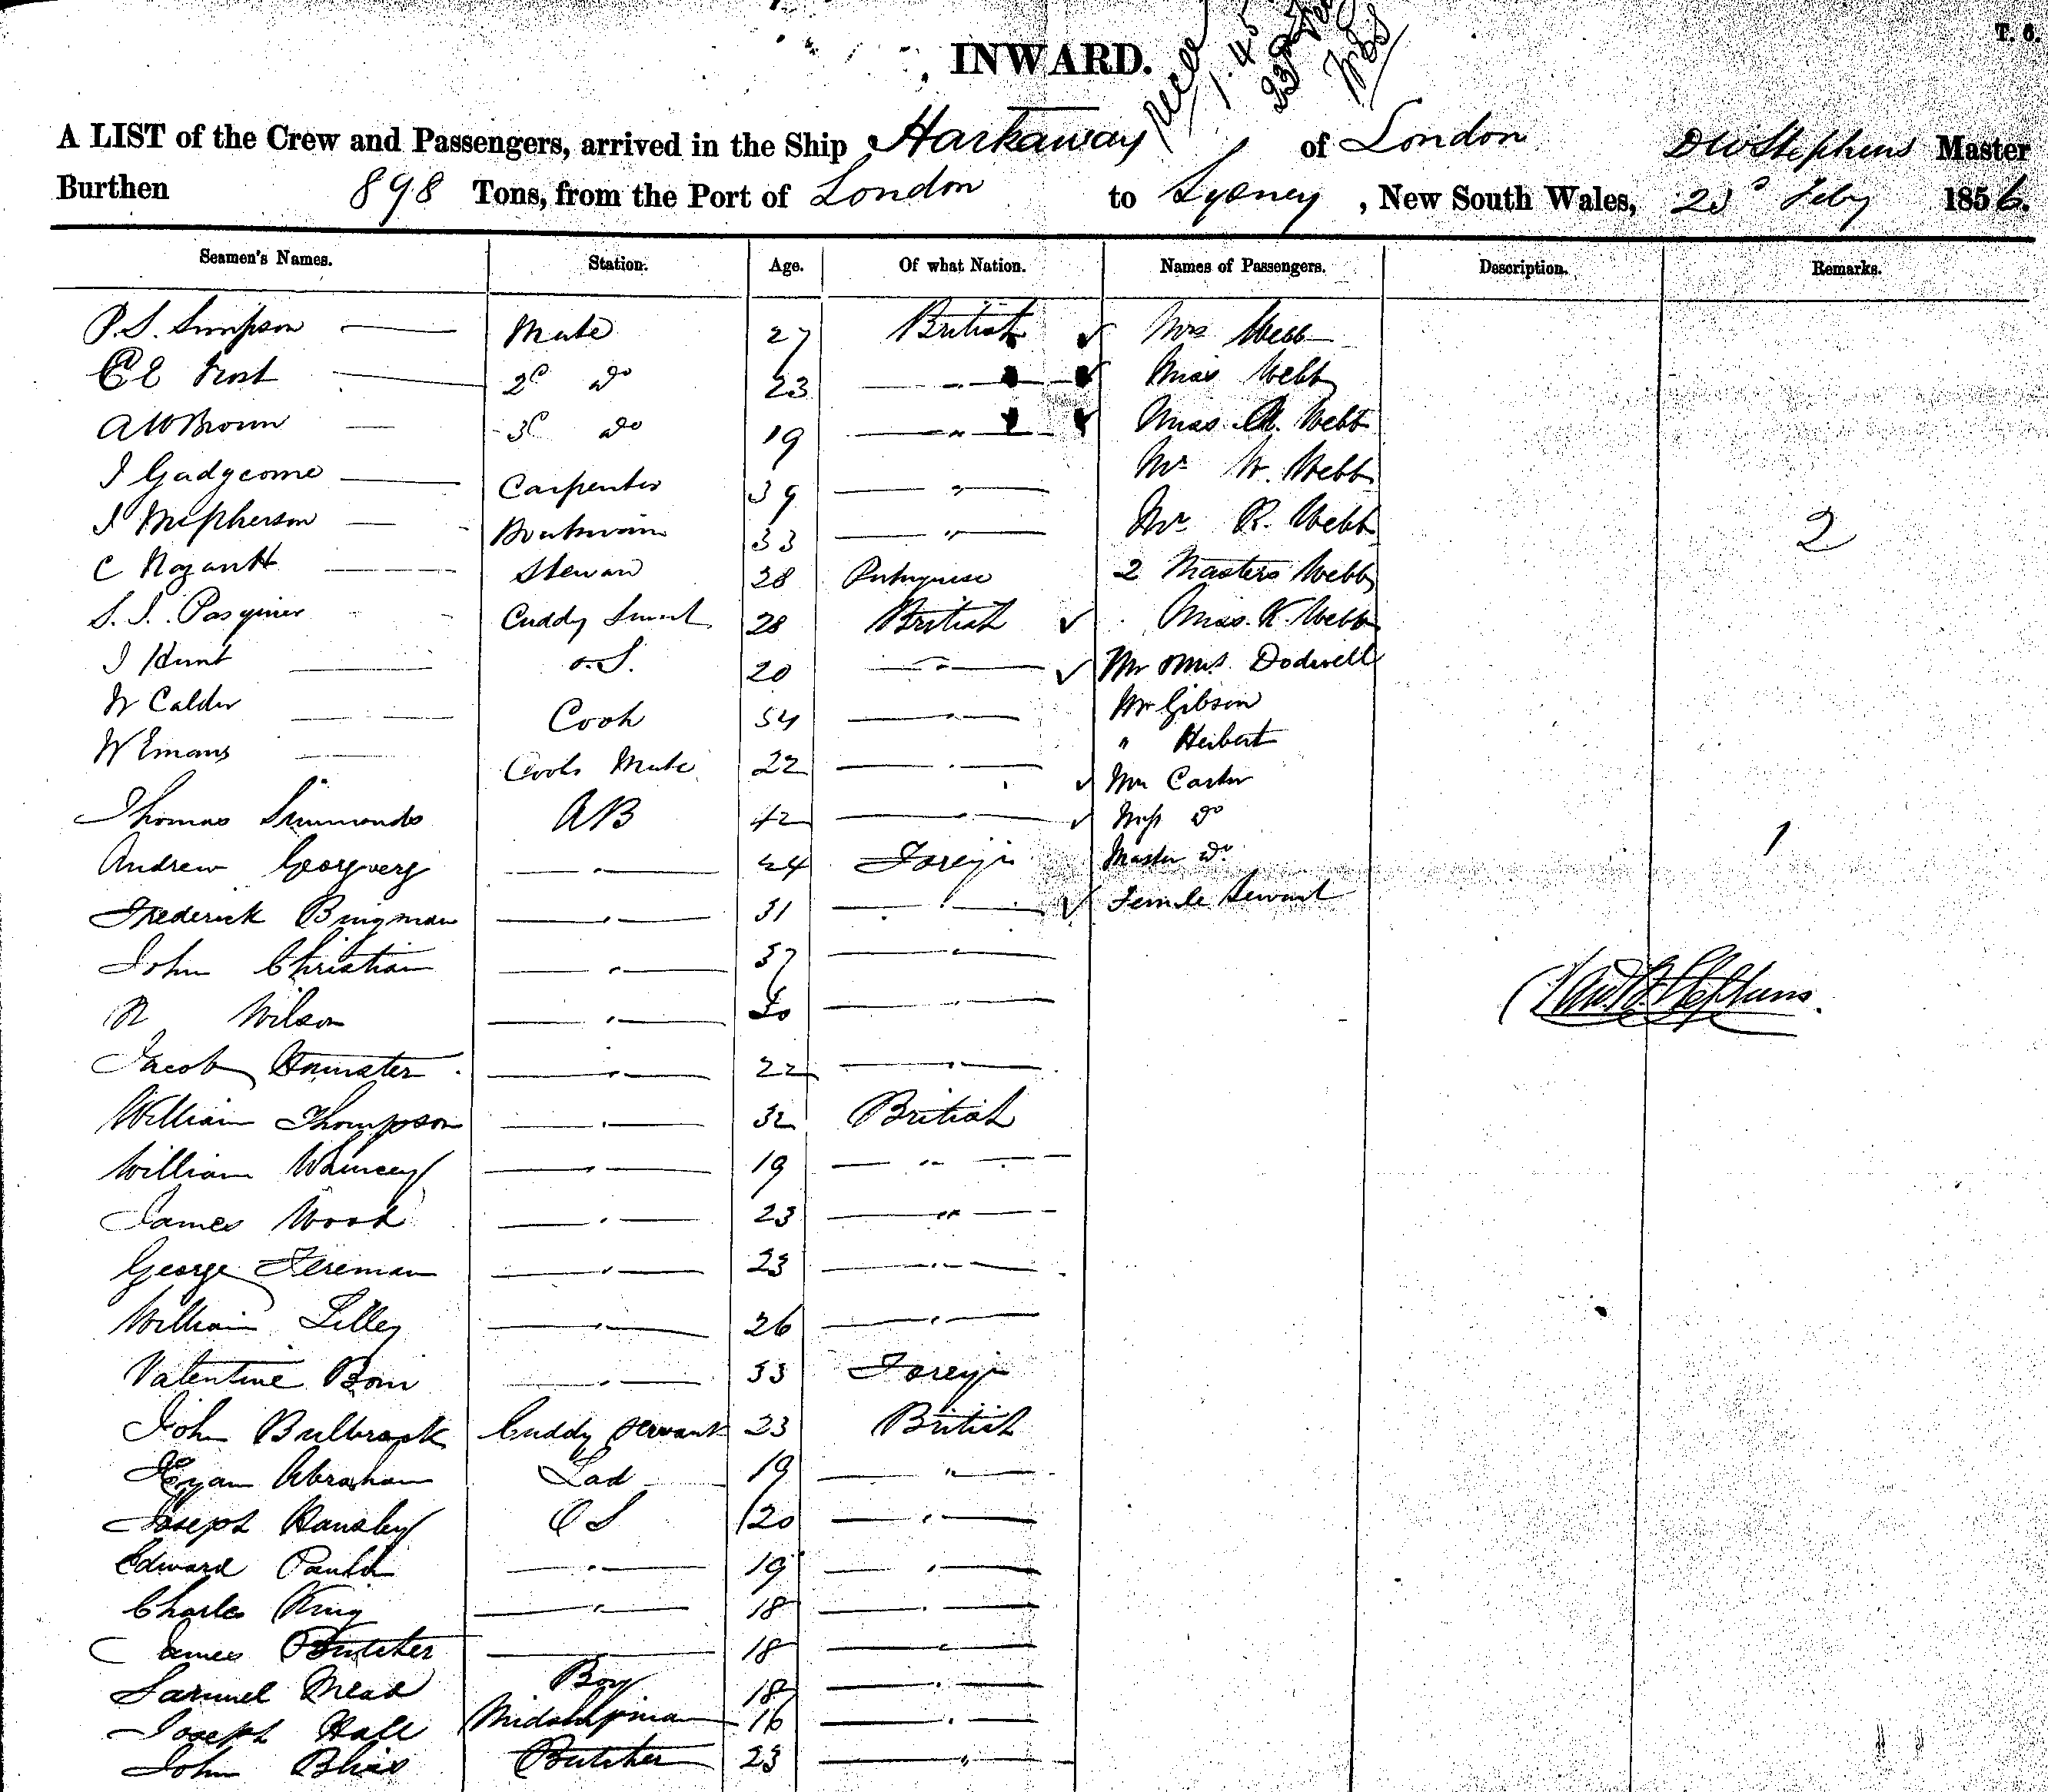 T. 6.
INWARD.
A LIST of the Crew and Passengers, arrived in the Ship Harkaway of London DW Stephens Master
Burthen 898 Tons, from the Port of London to Sydney, New South Wales, 23d Feby 1856.
Seamen's Names. Station. Age. Of what Nation. Names of Passengers. Description. Remarks.
P.S. Simpson Mate 27 British Mrs Webb
C E Frost 2d do 23 " Miss Webb
A W Brown 3d do 19 " Miss Webb
J Gadgcome Carpenter 39 " Mr W. Webb
J McPherson Boatswain 33 " Mr R. Webb 2
C Steward 28 Portuguese 2 Masters Webb
S. J. Pasquier Cuddy Servt 28 British Miss K. Webb
J Hunt O.S. 20 " Mr & Mrs Dodwell
W Calder Cook 54 " Mr Gibson
W Emans Cooks Mate 22 " " Herbert
Thomas Simmonds AB 42 " Mrs Carter
Miss do 1
Andrew " 24 Foreign Master do
Frederick Bingman " 31 " Female Servant
John Christian " 37 "
R Wilson " "
Jacob " 22 "
William Thompson " 32 British
William " 19 "
James Wood " 23 "
George Fereman " 23 "
William Lilley " 26 "
Valentine Bom " 33 Foreign
John Bulbrook Cuddy Servant 23 British
Hyam Abraham Lad 19 "
Joseph Hansley O S 20 "
Edward " 19 "
Charles King " 18 "
James Butcher 18 "
Samuel Mead Boy 18 "
Joseph Hall Midshipman 16 "
John Bliss Butcher 23 "